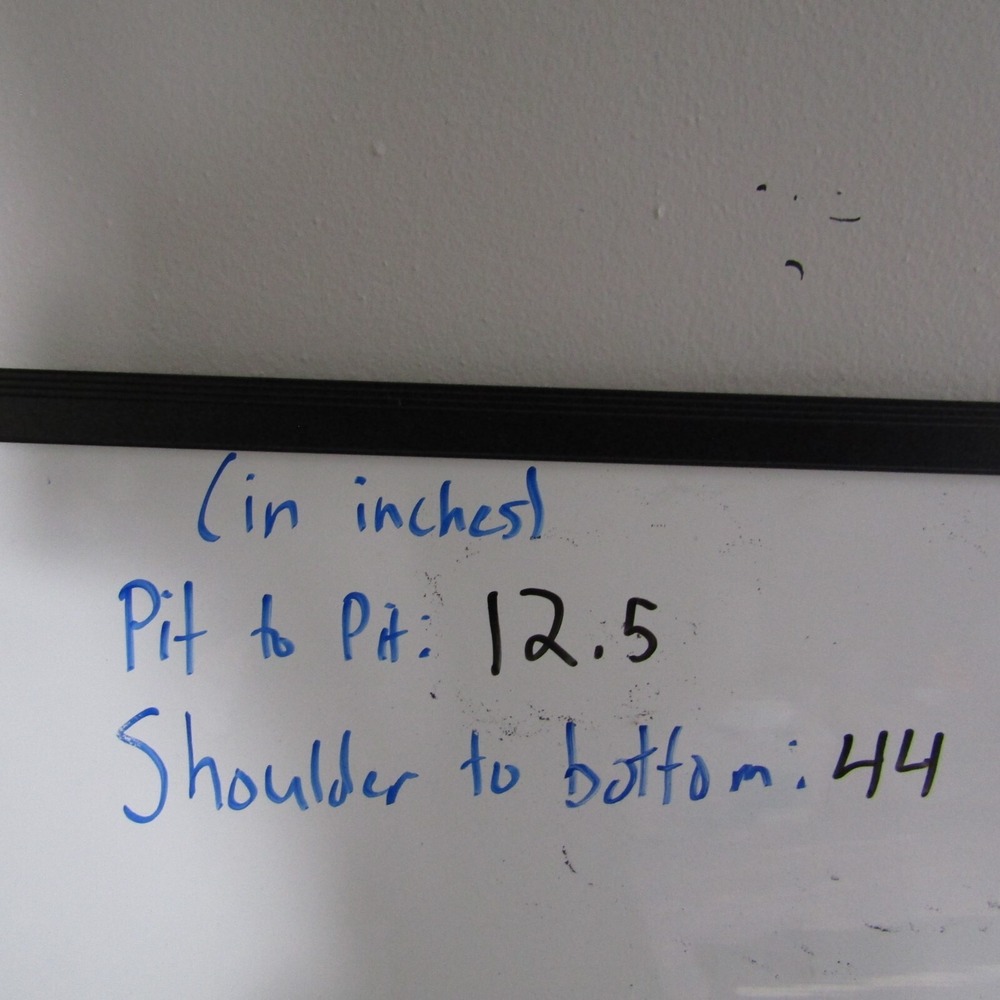 (in inches)
Pit to Pit: 12.5
Shoulder to bottom: 44